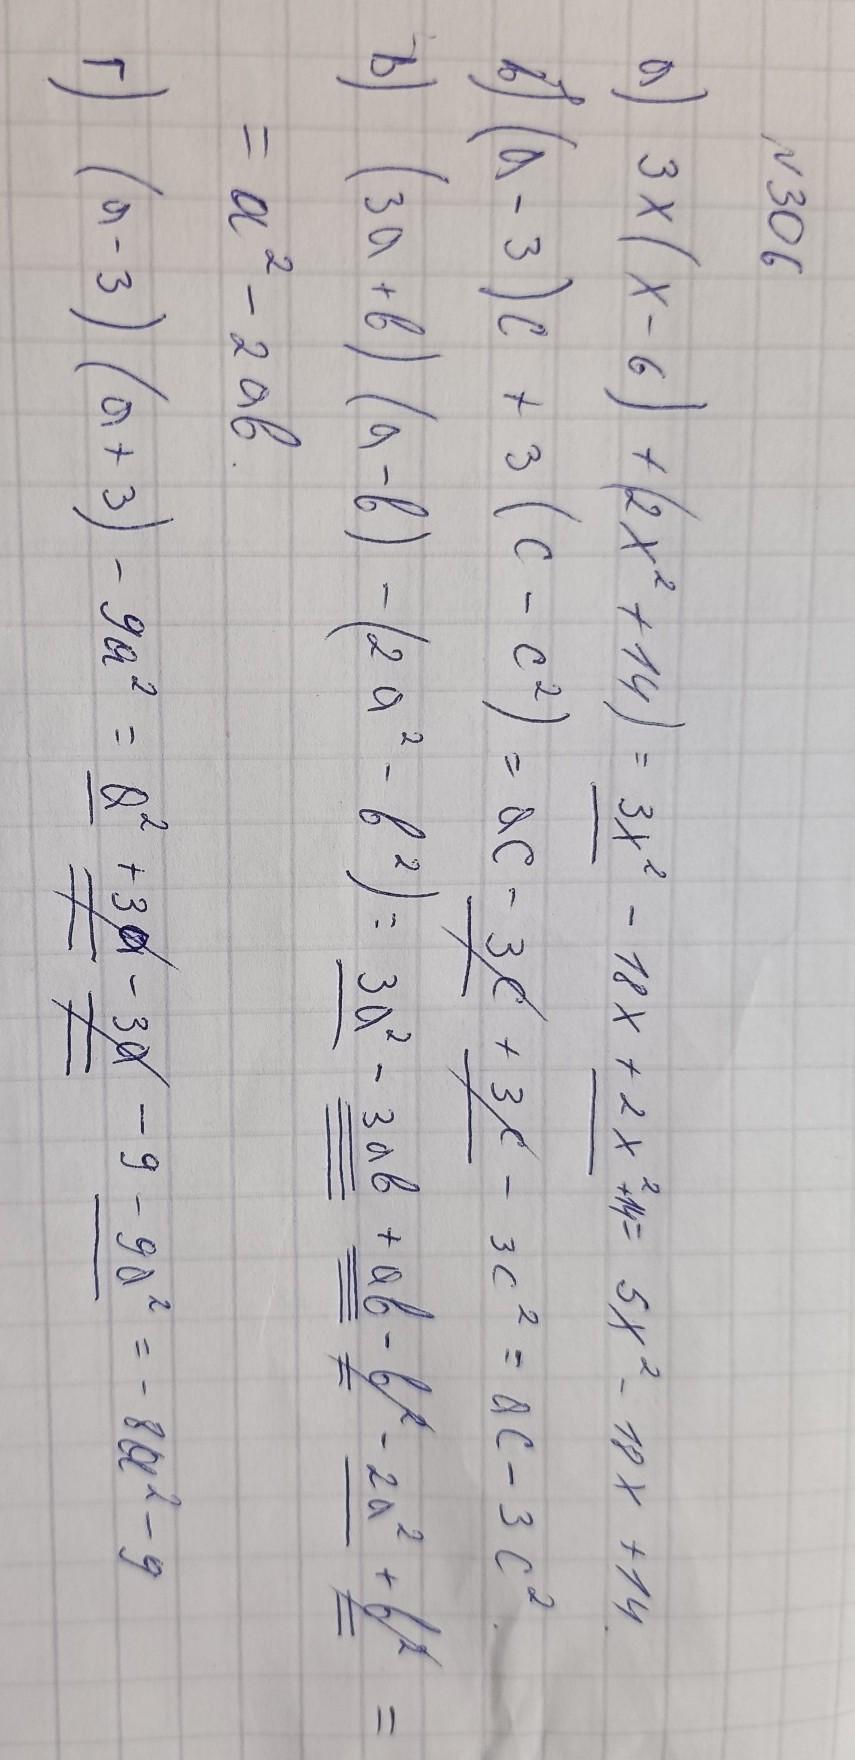 N 306
а) 3x(x-6)+(2x²+14)=3x²-18x+2x²+14=5x²-18x+14.
б) (a-3)c+3(c-c²)=ac-3c+3c-3c²=ac-3c².
в) (3a+b)(a-b)-(2a²-b²)=3a²-3ab+ab-b²-2a²+b²=
=a²-2ab.
г) (a-3)(a+3)-9a²=a²+3a-3a-9-9a²=-8a²-9